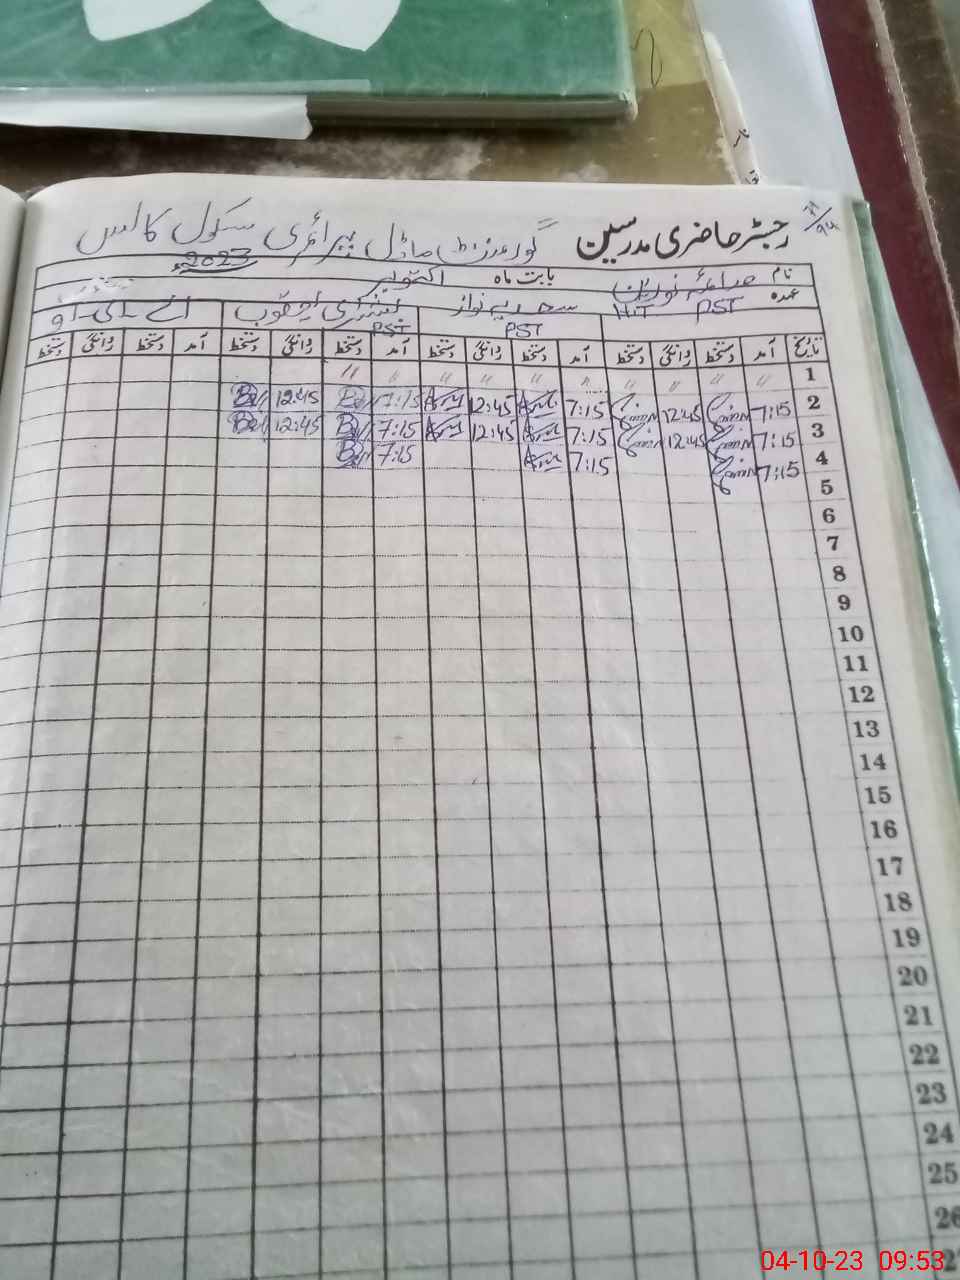 رجسٹر حاضری مدرسین گورنمنٹ ماڈل پرائمری سکول کالس
نام بابت ماہ اکتوبر 2023
عہدہ HT PST سحرش نواز PST بشریٰ یعقوب PST اے-ای-او
تاریخ آمد دستخط روانگی دستخط آمد دستخط روانگی دستخط آمد دستخط روانگی دستخط آمد دستخط روانگی دستخط
1 〃 〃 〃 〃 〃 〃 〃 〃 〃 〃
2 7:15 12:45 7:15 12:45 7:15 12:45
3 7:15 12:45 7:15 12:45 7:15 12:45
4 7:15 7:15 7:15
5
6
7
8
9
10
11
12
13
14
15
16
17
18
19
20
21
22
23
24
25
26
04-10-23 09:53